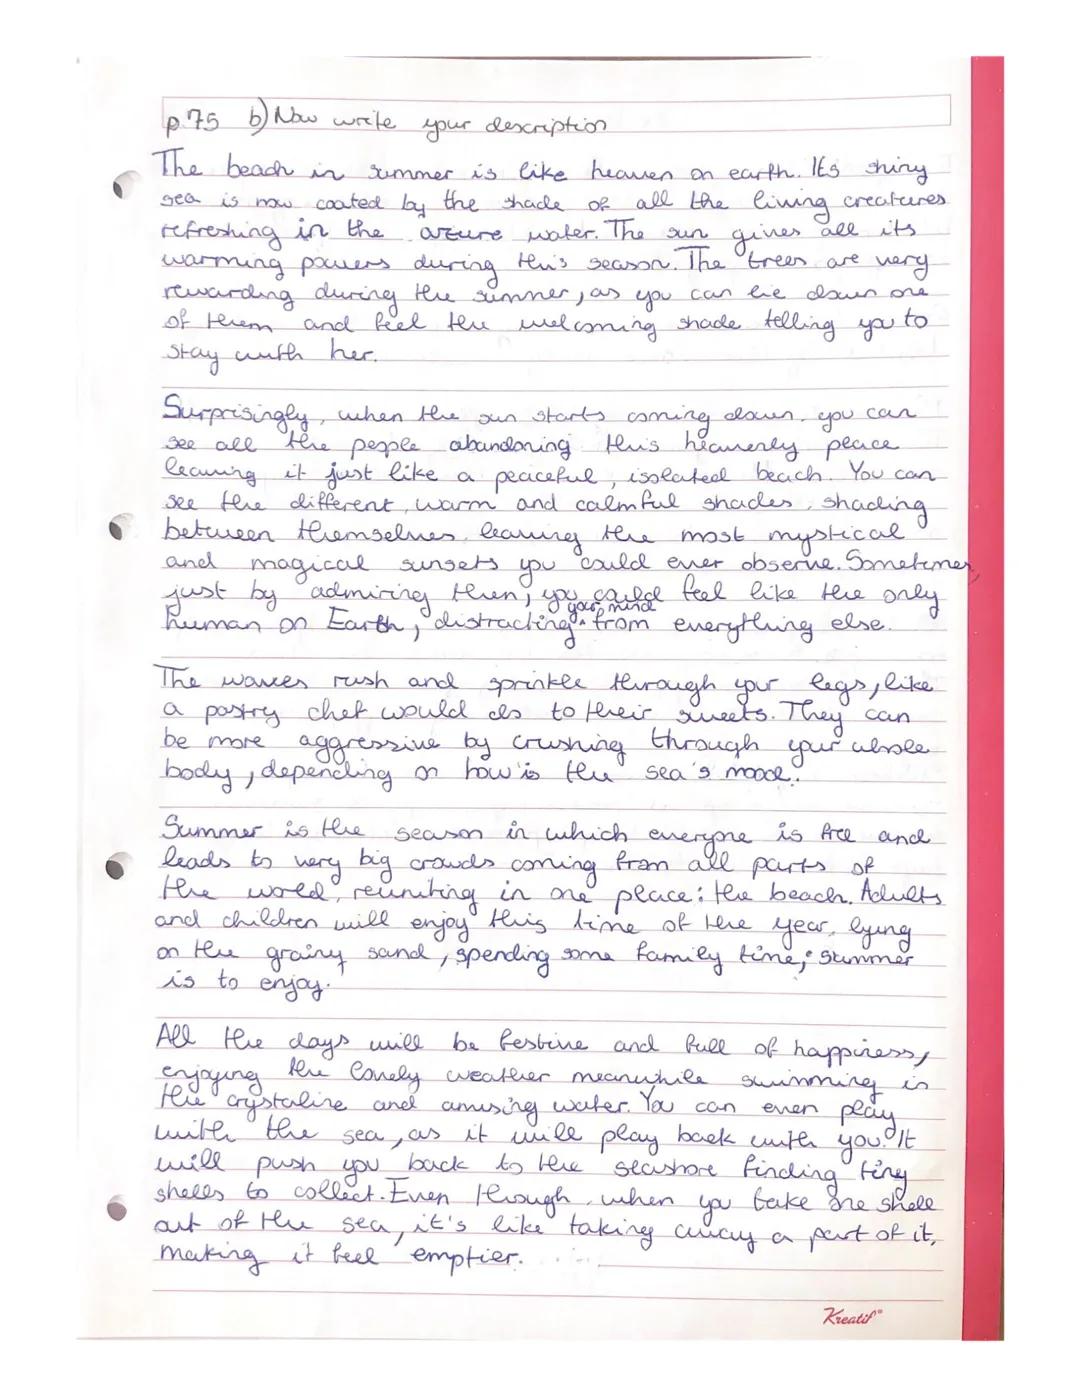 p.75 b) Now write your description
The beach in summer is like heaven on earth. Its shiny
sea is now coated by the shade of all the living creatures
refreshing in the azure water. The sun gives all its
warming powers during this season. The trees are very
rewarding during the summer, as you can lie down one
of them and feel the welcoming shade telling you to
stay with her.
Surprisingly, when the sun starts coming down, you can
see all the people abandoning this heavenly place
leaving it just like a peaceful, isolated beach. You can
see the different, warm and calmful shades, shading
between themselves, leaving the most mystical
and magical sunsets you could ever observe. Sometimes,
just by admiring them, you could feel like the only
human on Earth, distracting your mind from everything else.
The waves rush and sprinkle through your legs, like
a pastry chef would do to their sweets. They can
be more aggressive by crushing through your whole
body, depending on how is the sea's mood.
Summer is the season in which everyone is free and
leads to very big crowds coming from all parts of
the world, reuniting in one place: the beach. Adults
and children will enjoy this time of the year, lying
on the grainy sand, spending some family time; summer
is to enjoy.
All the days will be festive and full of happiness,
enjoying the lovely weather meanwhile swimming in
the crystaline and amusing water. You can even play
with the sea, as it will play back with you. It
will push you back to the seashore finding tiny
shells to collect. Even though, when you take one shell
out of the sea, it's like taking away a part of it,
making it feel emptier.
Kreatif